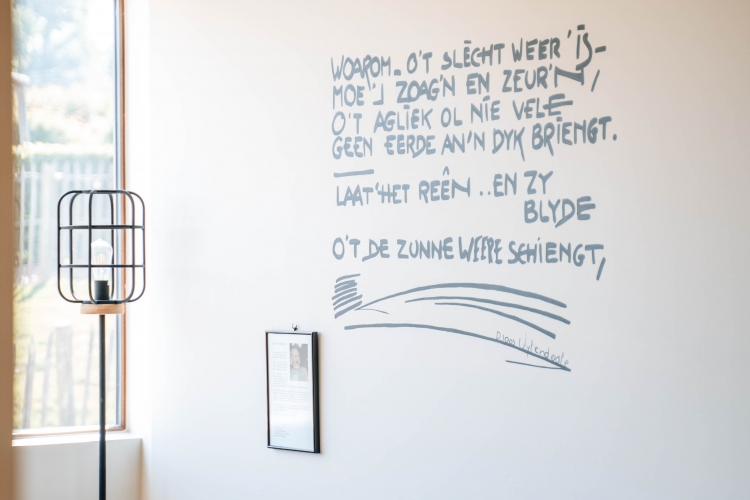 WOAROM_ O'T SLÈCHT WEER 'IS-
MOE 'J ZOAG'N EN ZEUR'N,
O'T AGLIEK OL NIE VELE
GEEN EERDE AN'N DYK BRIENGT.
LAAT 'HET REÊN ..EN ZY
BLYDE
O'T DE ZUNNE WEERE SCHIENGT,